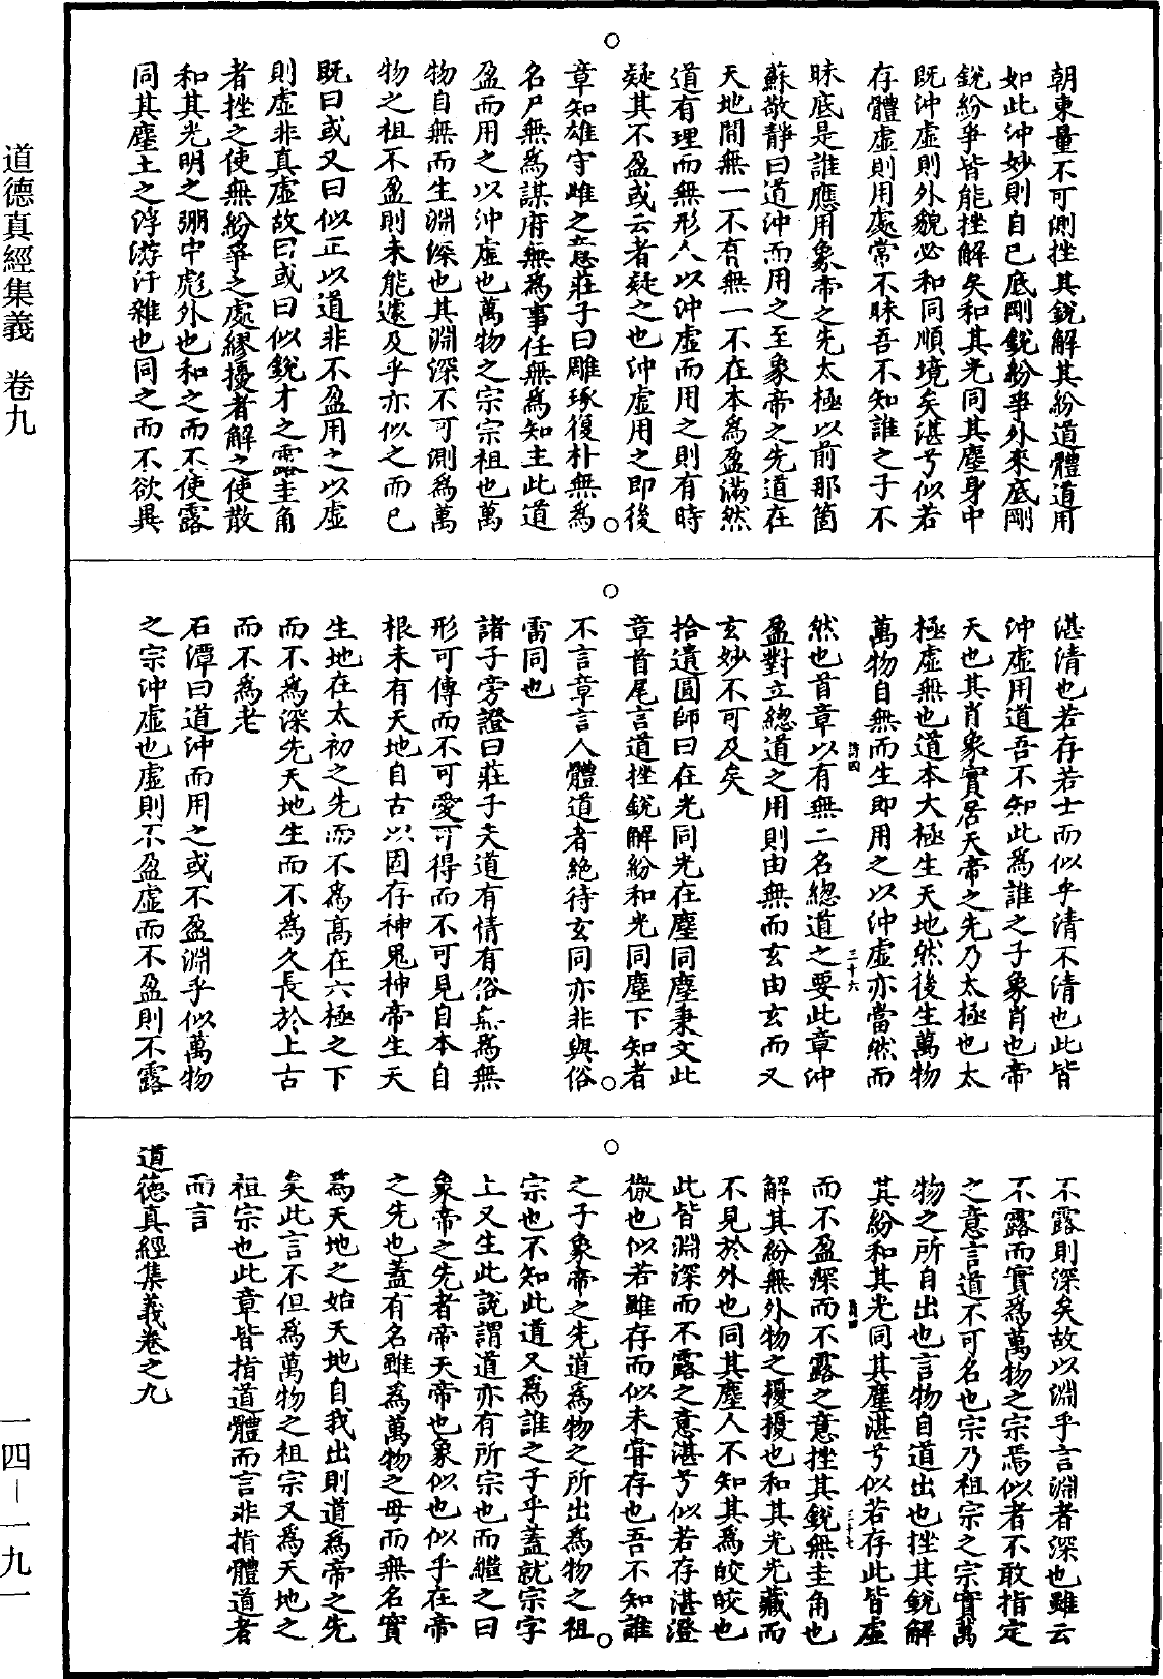 朝東量不可測挫其銳解其紛道體道用
如此沖妙則自已底剛銳紛爭外來底剛
銳紛爭皆能挫解矣和其光同其塵身中
既沖虛則外貌必和同順境矣湛兮似若
存體虛則用處常不昧吾不知誰之子不
昧底是誰應用象帝之先太極以前那箇
蘇敬靜曰道沖而用之至象帝之先道在
天地間無一不有無一不在本為盈滿然
道有理而無形人以沖虛而用之則有時
疑其不盈或云者疑之也沖虛用之即後
章知雄守雌之意莊子曰雕琢復朴無為
名尸無為謀府無為事任無為知主此道
盈而用之以沖虛也萬物之宗宗祖也萬
物自無而生淵深也其淵深不可測為萬
物之祖不盈則未能遽及乎亦似之而已
既曰或又曰似正以道非不盈用之以虛
則虛非真虛故曰或曰似銳才之露圭角
者挫之使無紛爭之處繆擾者解之使散
和其光明之弸中彪外也和之而不使露
同其塵土之浮游汙雜也同之而不欲異
湛清也若存若士而似乎清不清也此皆
沖虛用道吾不知此為誰之子象肖也帝
天也其肖象實居天帝之先乃太極也太
極虛無也道本大極生天地然後生萬物
萬物自無而生即用之以沖虛亦當然而
然也首章以有無二名總道之要此章沖
盈對立總道之用則由無而玄由玄而又
玄妙不可及矣
拾遺圓師曰在光同光在塵同塵秉文此
章首尾言道挫銳解紛和光同塵下知者
不言章言人體道者絶待玄同亦非與俗
雷同也
諸子旁證曰莊子夫道有情有俗無為無
形可傳而不可愛可得而不可見自本自
根未有天地自古以固存神鬼神帝生天
生地在太初之先而不為高在六極之下
而不為深先天地生而不為久長於上古
而不為老
石潭曰道沖而用之或不盈淵乎似萬物
之宗沖虛也虛則不盈虛而不盈則不露
不露則深矣故以淵乎言淵者深也雖云
不露而實為萬物之宗焉似者不敢指定
之意言道不可名也宗乃祖宗之宗實萬
物之所自出也言物自道出也挫其銳解
其紛和其光同其塵湛兮似若存此皆虛
而不盈深而不露之意挫其銳無圭角也
解其紛無外物之擾擾也和其光光藏而
不見於外也同其塵人不知其為皎皎也
此皆淵深而不露之意湛兮似若存湛澄
徹也似若雖存而似未甞存也吾不知誰
之子象帝之先道為物之所出為物之祖
宗也不知此道又為誰之子乎蓋就宗字
上又生此說謂道亦有所宗也而繼之曰
象帝之先者帝天帝也象似也似乎在帝
之先也蓋有名雖為萬物之母而無名實
為天地之始天地自我出則道為帝之先
矣此言不但為萬物之祖宗又為天地之
祖宗也此章皆指道體而言非指體道者
而言
道德真經集義卷之九
道德真經集義 卷九
一四—一九一
三十六
三十七